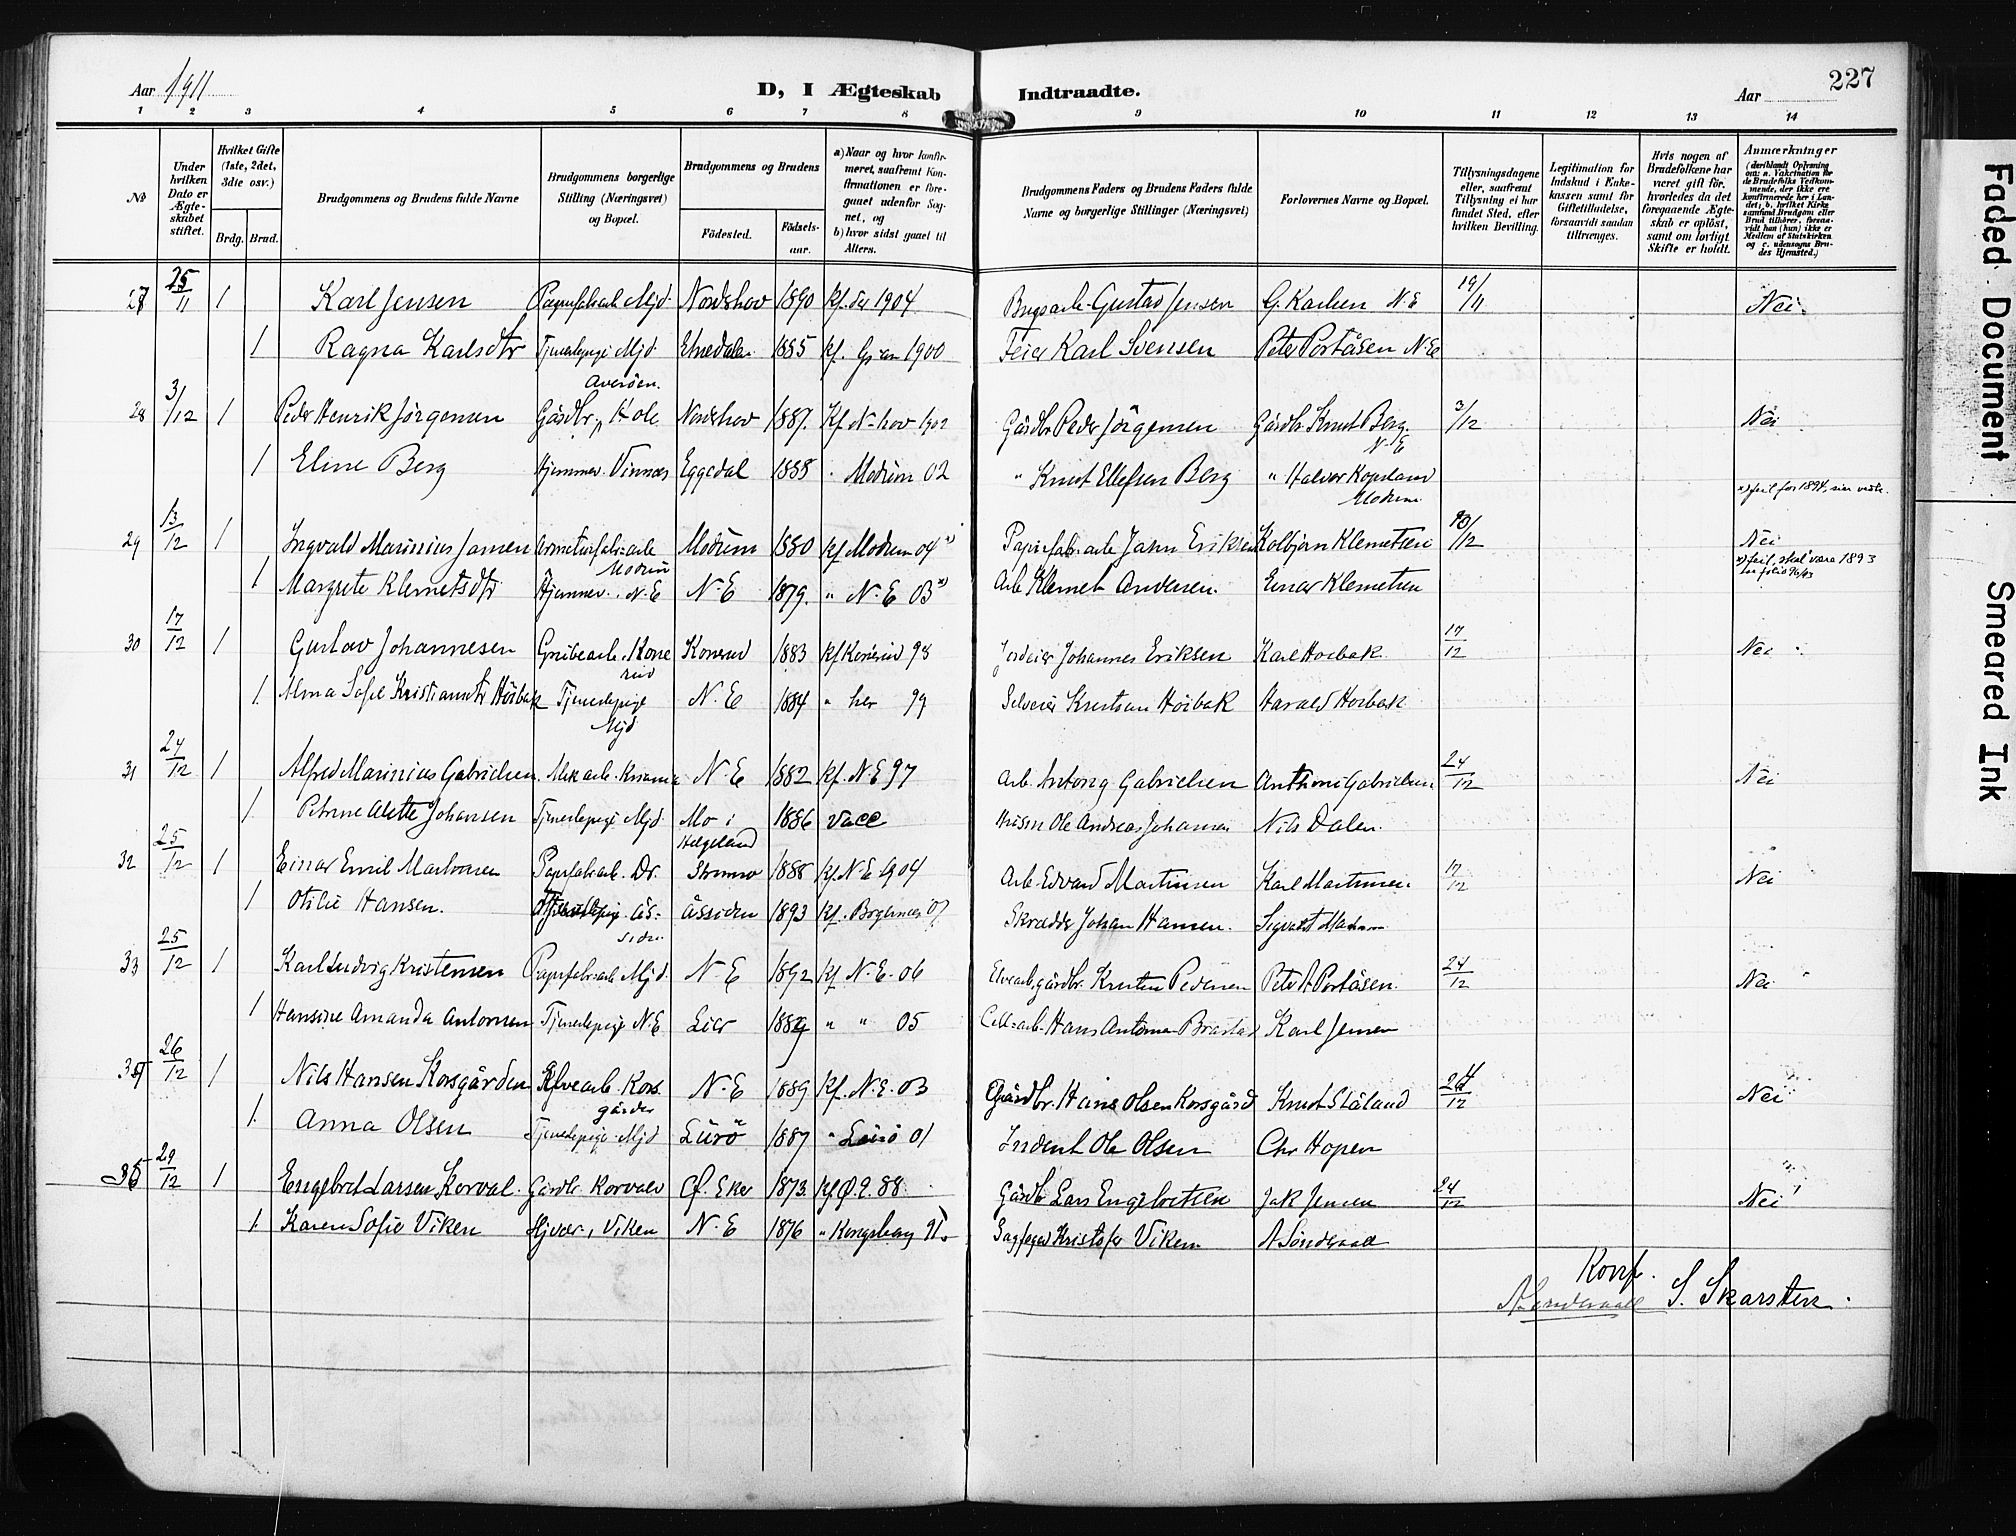 Aar 1911
D, I Ægteskab Indtraadte.
Aar
227
1 2 3 4 5 6 7 8 9 10 11 12 13 14
No
Under hvilken Dato er Ægte-skabet stiftet.
Hvilket Gifte (1ste, 2det, 3die osv.)
Brdg. Brud.
Brudgommens og Brudens fulde Navne
Brudgommens borgerlige Stilling (Næringsvei) og Bopæl.
Brudgommens og Brudens
Fødested.
Fødsels-aar.
a) Naar og hvor konfir-meret, saafremt Kon-firmationen er fore-gaaet udenfor Sog-net, og
b) hvor sidst gaaet til Alters.
Brudgommens Faders og Brudens Faders fulde Navne og borgerlige Stillinger (Næringsvei)
Forlovernes Navne og Bopæl.
Tillysningsdagene eller, saafremt Tillysning ei har fundet Sted, efter hvilken Bevilling.
Legitimation for Indskud i Enke-kassen samt for Giftetilladelse, forsaavidt saadan tiltrænges.
Hvis nogen af Brudefolkene har været gift før, hvorledes da det foregaaende Ægte-skab er opløst, samt om lovligt Skifte er holdt.
Anmærkninger
27 25/11 1 Karl Jensen Papirfabrarb. Mjd. Nordrhov 1890 Kf. 1904 Gustav Jensen G. Karlsen N.E 19/11 Nei.
1 Ragna Karlsdtr Tjenestepige Mjd Etnedalen 1885 Kf. Gran 1900 Feier Karl Svensen Peter Portåsen N.E
28 3/12 1 Peder Henrik Jörgensen Gårdbr. Averöen. Hole Nordrhov 1887. Kf N-hov 1902 Gårdbr Peder Jörgensen Gårdbr. Knut Berg N.E 3/12 Nei
1 Eline Berg Hjemmev. Vinnæs Eggedal 1888 " Modum 02 " Knut Ellefsen Berg " Halvor Kopsland Modum.
29 13/12 1 Ingvald Marinius Jansen Modum Modum 1880 Kf Modum 04 x) Papirfabrarb Jahn Eriksen Kolbjørn Klemetsen 10/12 Nei
x) feil, skal være 1893
1 Margrete Klemetsdtr Hjemmev. N.E N.E 1879. " N.E 03 x) Arb. Klemet Andersen. Einar Klemetsen
30 17/12 1 Gustav Johannesen Grubearb. Konerud Konerud 1883 Kf Konerud 98 Jordeier Johannes Eriksen Karl Hoibak 17/12 Nei
1 Alma Sofie Kristiansdtr Höibak Tjenestepige Mjd N.E 1884 " her 99 Selveier Kristian Höibak Harald Hoibak
31 24/12 1 Alfred Marinius Gabrielsen Mek arb. N.E 1882 Kf. N.E 97 Arb. Antony Gabrielsen Anthoni Gabrielsen 24/12 Nei
1 Petrine Alette Johansen Tjenestepige Mjd. Mo i Helgeland 1886 Vacc Husm Ole Andreas Johansen Nils Dalen.
32 25/12 1 Einar Emil Martinsen Papirfabrarb. Dr. Strømsø 1888 Kf. N.E 1904 Arb. Edvard Martinsen Karl Martinsen. 17/12 Nei
1 Otilie Hansen. Åssiden Åssiden 1893 Kf. Bragernæs 07 Skrædder Johan Hansen. Sigvart
33 25/12 1 Karl Ludvig Kristensen Papirfabrarb Mjd. N.E 1892 Kf N.E. 06 Elvearb, gårdbr. Kristen Pedersen Peter A Portåsen. 24/12 Nei
1 Hansine Amanda Antonsen Tjenestepige N.E Lier 1889 " " 05 Cell-arb. Hans Antonsen Karl Jensen
34 26/12 1 Nils Hansen Korsgården Elvearb. Korsgården N.E 1889 Kf. N.E. 03 Gårdbr. Hans Olsen Korsgård Knut Ståland 24/12 Nei
1. Anna Olsen Tjenestepige Mjd Lurö 1887 " Lurö 01 Indent Ole Olsen Chr Hopen
35 29/12 1 Engebret Larsen Korval. Gårdbr. Korvald Øf. Eker 1873. Kf Ø.E. 88. Gårdbr Lars Engebretsen Jak Jensen 24/12 Nei
1. Karen Sofie Viken Hjvær., Viken N.E 1876 " Kongsberg 91. Kristofer Viken A Sönderaal
Konf.
S. Skarsten.
Faded Document
Smeared Ink